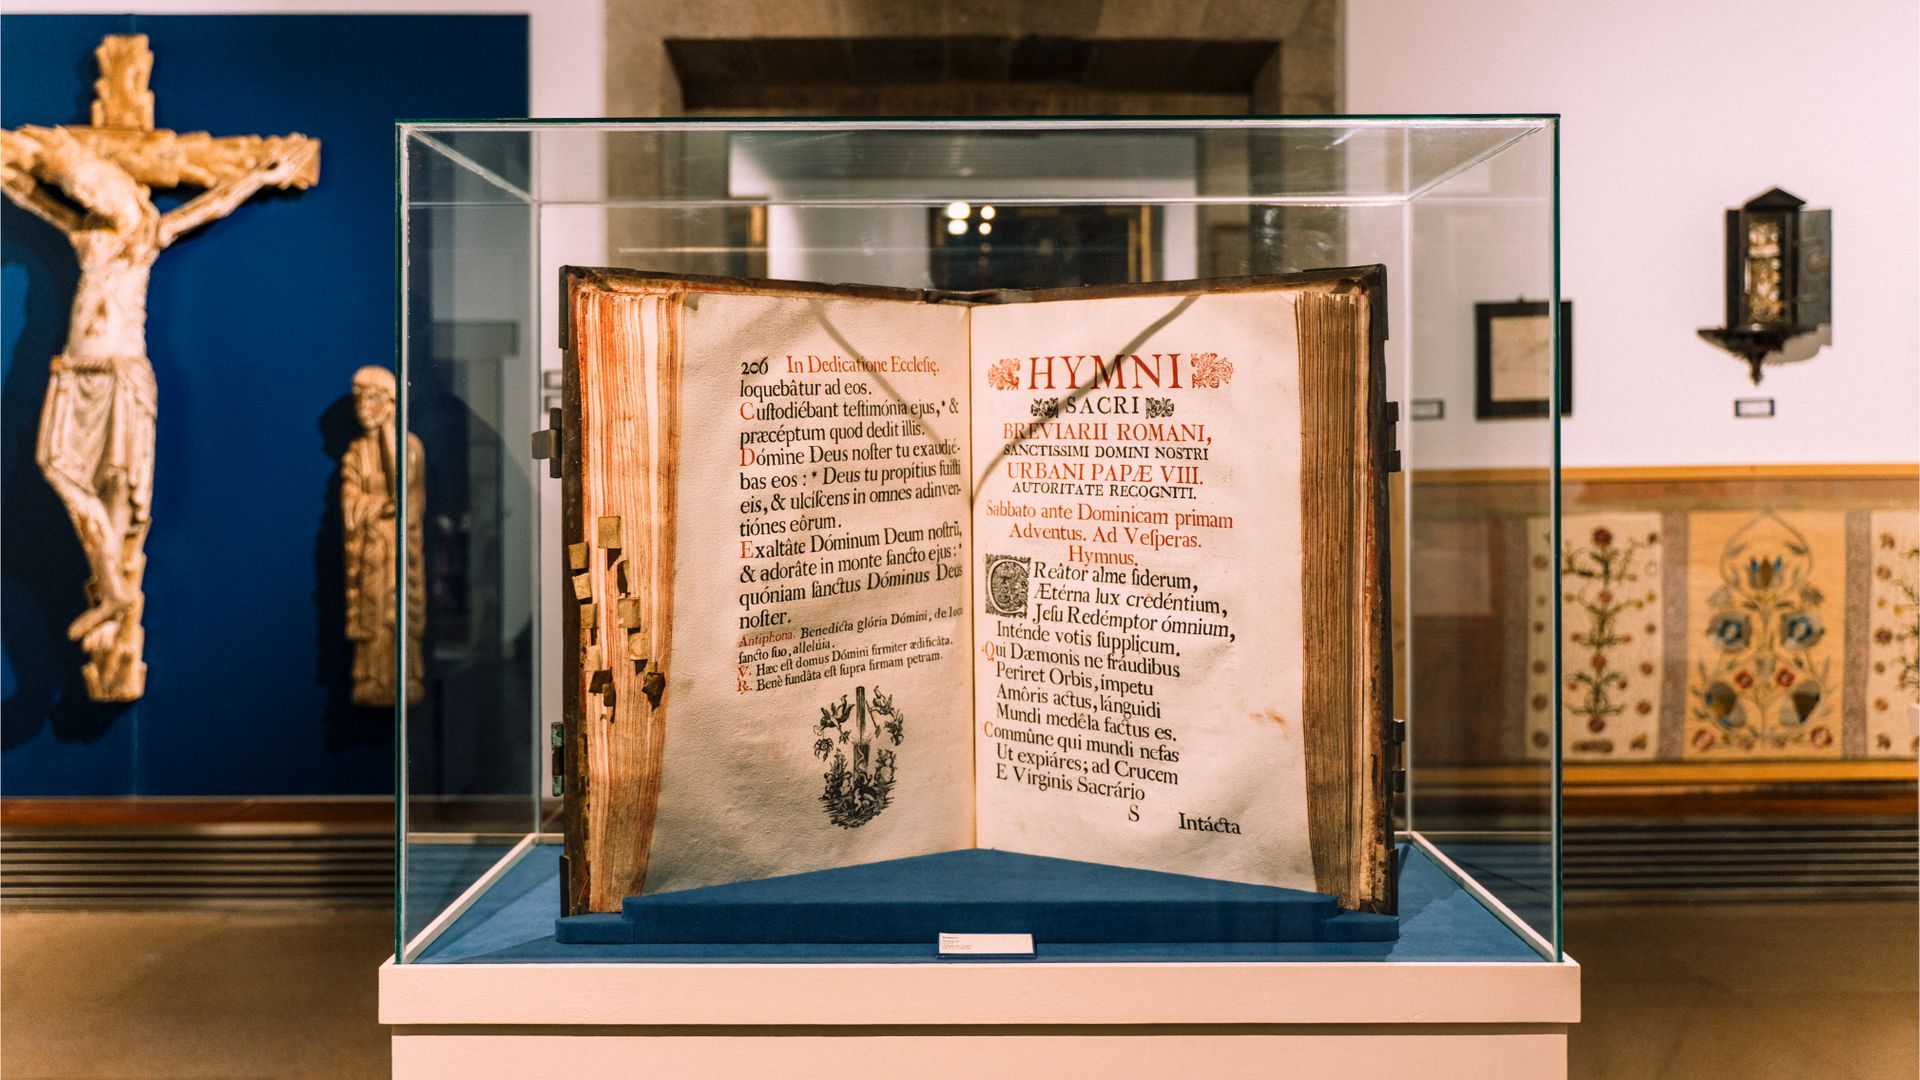 206 In Dedicatione Ecclesię.
loquebâtur ad eos.
Cuſtodiébant teſtimónia ejus,* &
præcéptum quod dedit illis.
Dómine Deus noſter tu exaudié-
bas eos : * Deus tu propítius fuíſti
eis, & ulcíſcens in omnes adinven-
tiónes eôrum.
Exaltâte Dóminum Deum noſtrũ,
& adorâte in monte ſancto ejus : *
quóniam ſanctus Dóminus Deus
noſter.
Antiphona. Benedícta glória Dómini, de loco
ſancto ſuo, alleluia.
V. Hæc eſt domus Dómini firmiter ædificâta.
R. Benè fundâta eſt ſupra firmam petram.
HYMNI
SACRI
BREVIARII ROMANI,
SANCTISSIMI DOMINI NOSTRI
URBANI PAPÆ VIII.
AUTORITATE RECOGNITI.
Sabbato ante Dominicam primam
Adventus. Ad Veſperas.
Hymnus.
CReâtor alme ſiderum,
Ætérna lux credéntium,
Jeſu Redémptor ómnium,
Inténde votis ſupplicum.
Qui Dæmonis ne fráudibus
Períret Orbis, ímpetu
Amôris actus, lánguidi
Mundi medêla factus es.
Commûne qui mundi nefas
Ut expiáres; ad Crucem
E Vírginis Sacrário
S Intácta